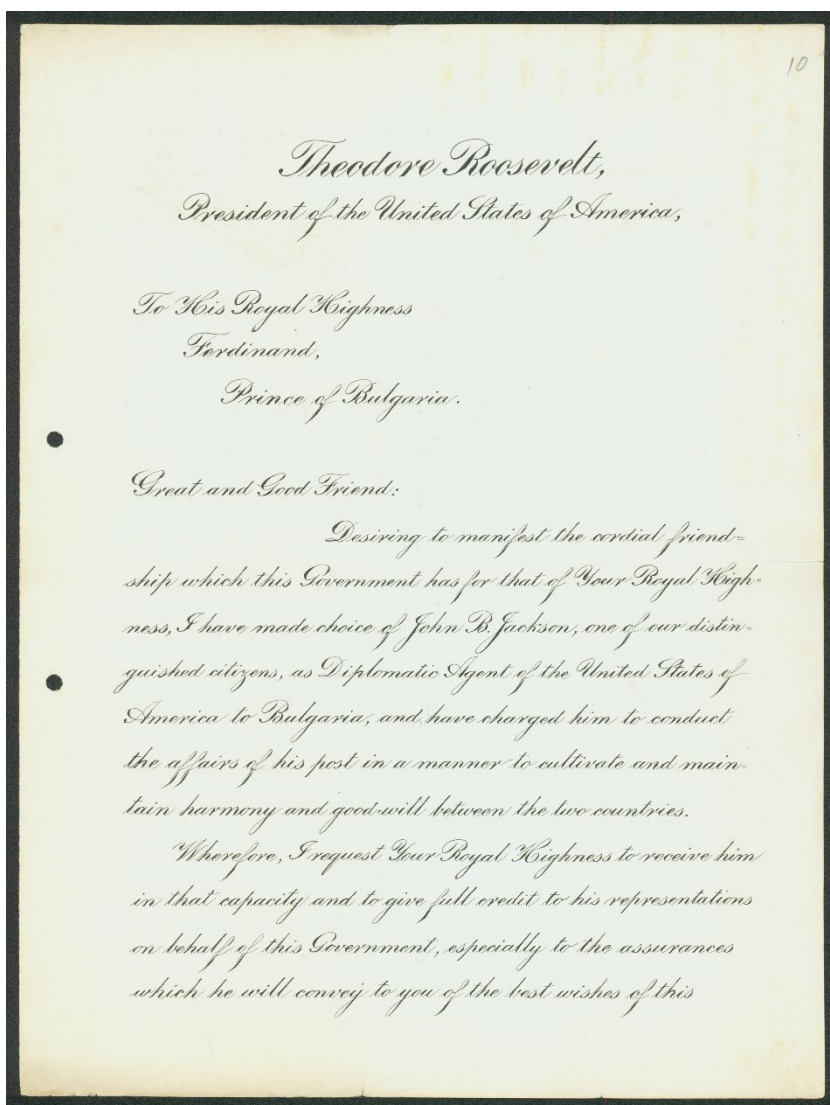 10
Theodore Roosevelt,
President of the United States of America,
To His Royal Highness
Ferdinand,
Prince of Bulgaria.
Great and Good Friend:
Desiring to manifest the cordial friend=
ship which this Government has for that of Your Royal High=
ness, I have made choice of John B. Jackson, one of our distin=
guished citizens, as Diplomatic Agent of the United States of
America to Bulgaria, and have charged him to conduct
the affairs of his post in a manner to cultivate and main=
tain harmony and good-will between the two countries.
Wherefore, I request Your Royal Highness to receive him
in that capacity and to give full credit to his representations
on behalf of this Government, especially to the assurances
which he will convey to you of the best wishes of this